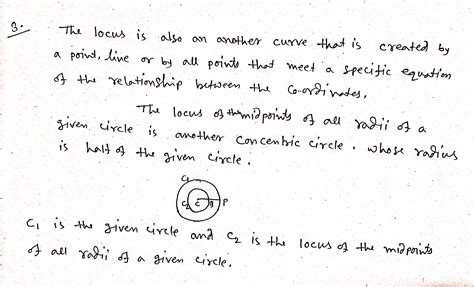 3.
The locus is also an another curve that is created by
a point, line or by all points that meet a specific equation
of the relationship between the Co-ordinates.
The locus of the midpoints of all radii of a
given circle is another concentric circle. whose radius
is half of the given circle.
C1
C2 C P
C1 is the given circle and C2 is the locus of the midpoints
of all radii of a given circle.